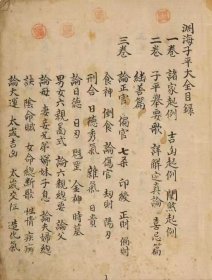 淵海子平大全目録
一卷 諸家起例 吉凶起例 闌駁起例
二卷 子平舉要歌 詳解定真論 善惡篇
繼善篇
三卷
論正官 偏官 七杀 印綬 正財 偏財
食神 倒食 論傷官 刼財 陽刃
刑合 日德秀氣 雜氣 日貴
論日德 日刃 魁罡 金神 時墓
男女六親畵式 六親總要 論父
論母 妻妾兄弟姉妹子息 論夫婦總
訣 陰命賦 女命總断歌 性情 疾病
論大運 太歲吉凶 太歲交征 造化氣